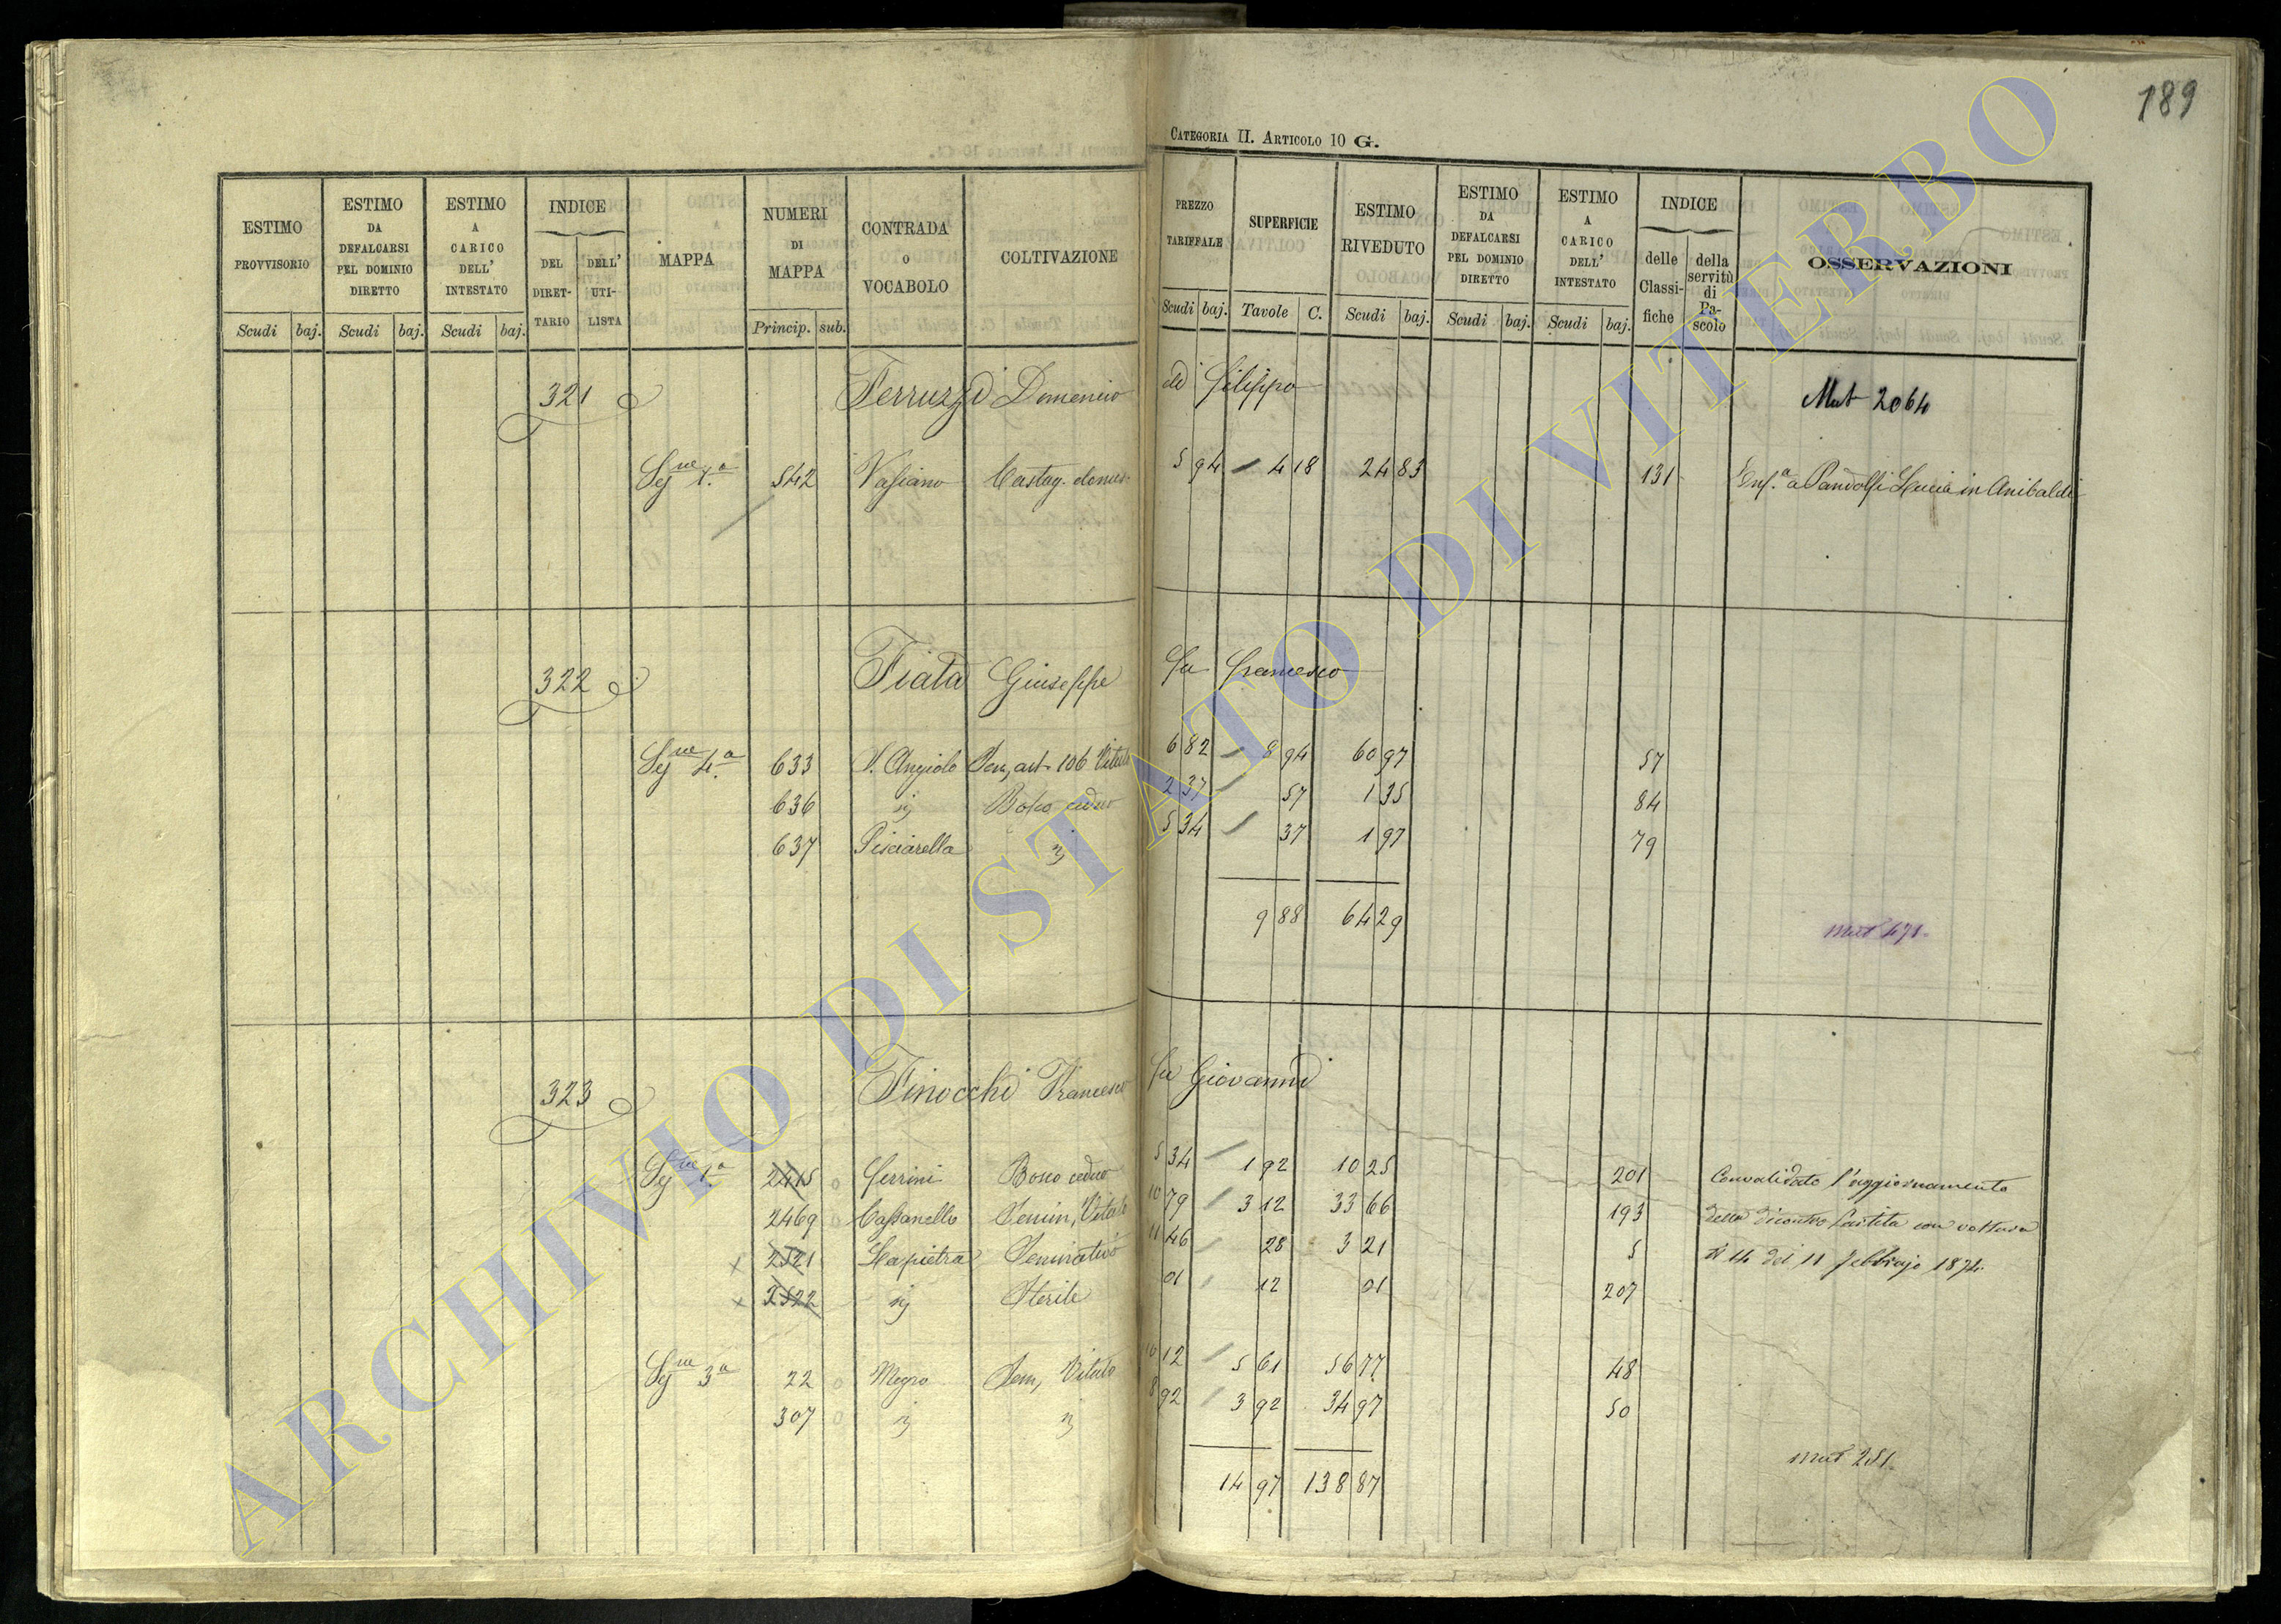 189
CATEGORIA II. ARTICOLO 10 G.
ESTIMO PROVVISORIO
ESTIMO DA DEFALCARSI PEL DOMINIO DIRETTO
ESTIMO A CARICO DELL' INTESTATO
INDICE
DEL DIRET-TARIO
DELL' UTI-LISTA
MAPPA
NUMERI DI MAPPA
CONTRADA O VOCABOLO
COLTIVAZIONE
PREZZO TARIFFALE
SUPERFICIE
ESTIMO RIVEDUTO
ESTIMO DA DEFALCARSI PEL DOMINIO DIRETTO
ESTIMO A CARICO DELL' INTESTATO
INDICE
delle Classi-fiche
della servitù di Pa-scolo
OSSERVAZIONI
Scudi baj. Scudi baj. Scudi baj. Princip. sub. Scudi baj. Tavole C. Scudi baj. Scudi baj. Scudi baj.
321 Ferruzzi Domenico di Filippo Mut 2064
Seg.ne 1.a 542 Vasiano Castag. domes. 5 94 4 18 24 83 131 Enf.a a Pandolfi Lucia in Anibaldi
322 Fiata Giuseppe fu Francesco
Seg.ne 4.a 633 S. Angiolo Sem, art. 106 Vitato 6 82 8 94 60 97 57
636 ij Bosco ceduo 2 37 57 1 35 84
637 Pisciarella ij 5 34 37 1 97 79
9 88 64 29
mut 471.
323 Finocchi Francesco fu Giovanni
Seg.ne 1.a 2415 Ferrini Bosco ceduo 5 34 1 92 10 25 201 Convalidato l'aggiornamento
2469 Cassanello Semin, Vitato 10 79 3 12 33 66 193 della dicontro partita con voltura
x 2521 Lapietra Seminativo 11 46 28 3 21 5 N 14 del 11 febbrajo 1874.
x 2522 ij Sterile 01 12 01 207
Seg.ne 3.a 22 Mogro Sem, Vitato 10 12 5 61 56 77 48
307 ij ij 8 92 3 92 34 97 50
14 97 138 87
mut 251.
ARCHIVIO DI STATO DI VITERBO